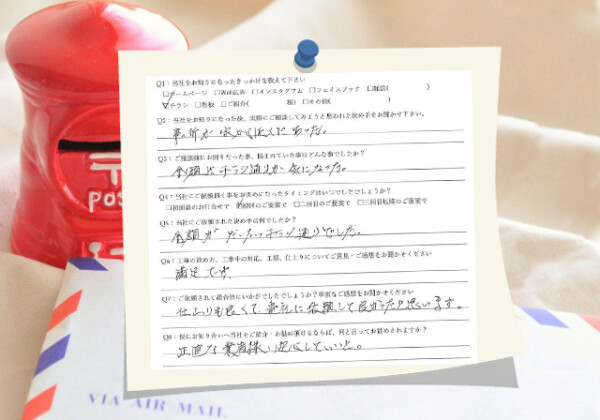 Q1：当社をお知りになったきっかけを教えて下さい
□ホームページ □Web広告 □インスタグラム □フェイスブック □雑誌( )
☑チラシ □看板 □ご紹介( 様) □その他( )
Q2：当社をお知りになった後、実際にご相談してみようと思われた決め手をお聞かせ下さい。
事務所が家から近くにあった。
Q3：ご相談前にお困りだった事、悩まれていた事はどんな事でしたか？
金額がチラシ通りか気になった。
Q4：当社にご依頼頂く事をお決めになったタイミングはいつでしたでしょうか？
□初回のお打合せで ☑初回のご提案で □二回目のご提案で □三回目以降のご提案で
Q5：当社にご依頼された決め手は何でしたか？
金額が だいたいチラシ通りでした。
Q6：工事の進め方、工事中の対応、工期、仕上りについてご意見・ご感想をお聞かせください
満足です
Q7：ご依頼されて総合的にいかがでしたでしょうか？率直なご感想をお聞かせください
仕上りも良くて、御社に依頼して良かったと思います。
Q8：仮にお知り合いへ当社をご紹介・お勧め頂けるならば、何と言ってお勧めされますか？
正直な業者様で安心していいと。
〒
POS
VIA AIR MAIL